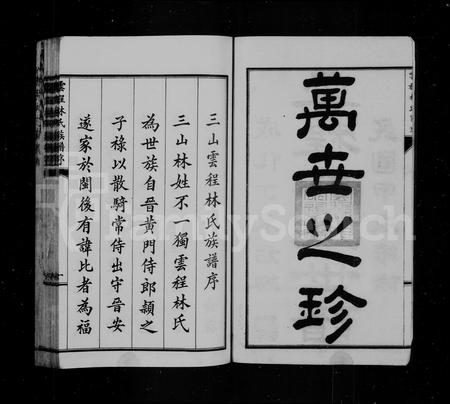 萬世之珍
三山雲程林氏族譜序
三山林姓不一獨雲程林氏
為世族自晉黃門侍郎頴之
子祿以散騎常侍出守晉安
遂家於閩後有諱比者為福
雲程林氏族譜序
FamilySearch